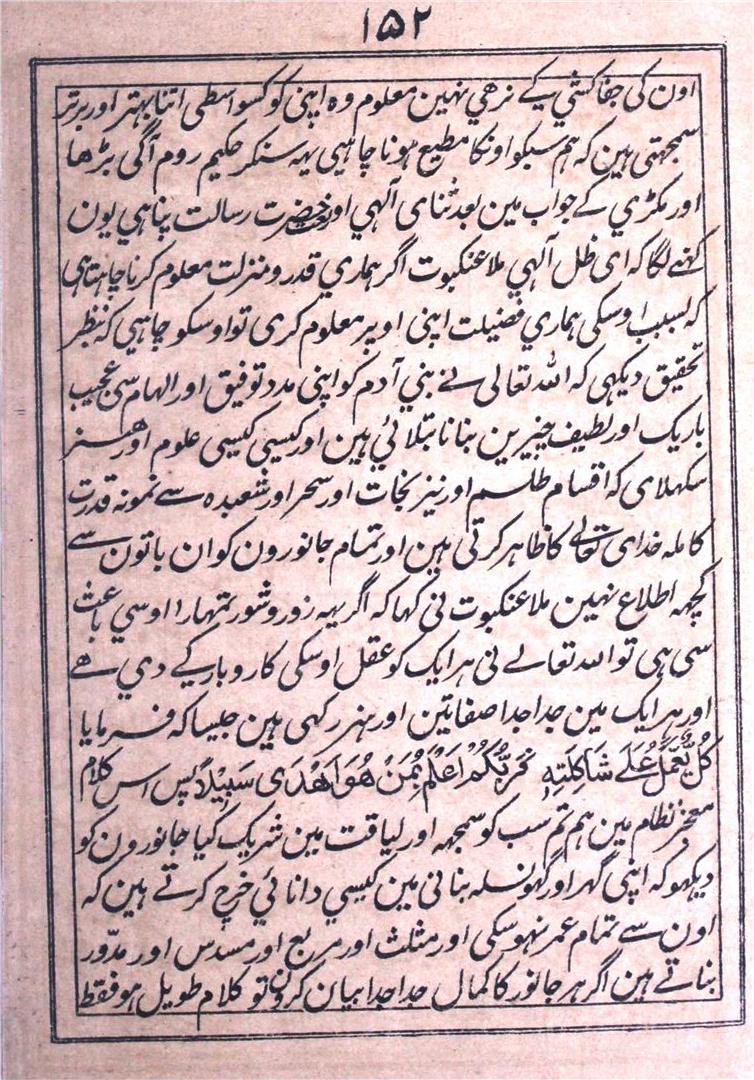 ۱۵۲
اون کی جفاکشي کے نرهي نہین معلوم وہ اپنی کو کسواسطی اتنا بہتر اور برتر
سمجہتی ہین کہ ہم سبکو اونکا مطیع ہونا چاہیی یہہ سنکر حکیم روم آگی بڑھا
اور مکڑي کے جواب مین بعد ثنای آلہي اور نعت حضرت رسالت پناهي یون
کہنے لگا کہ ای ظل آلہي ملا عنکبوت اگر ہماري قدر و منزلت معلوم کرنا چاہتا ہی
کہ بسبب اوسکی ہماري فضیلت اپنی اوپر معلوم کری تو اوسکو چاہیي کہ نظر
تحقیق دیکہی کہ اللہ تعالی نے بني آدم کو اپنی مدد توفیق اور الہام سی عجیب
باریک اور لطیف چیزین بنانا بتلائي ہین اور کیسي کیسی علوم اور هنر
سکہلای کہ اقسام طلسم اور نیرنجات اور سحر اور شعبدہ سے نمونہ قدرت
کاملہ خدای تعالے کا ظاہر کرتی ہین اور تمام جانورون کو ان باتون سے
کچہہ اطلاع نہین ملا عنکبوت نی کہا کہ اگر یہہ زور و شور تمہارا اوسي باعث
سی ہی تو اللہ تعالے نی ہر ایک کو عقل اوسکی کاروبار کے دي هے
اور ہر ایک مین جدا جدا صفاتین اور ہنر رکہی ہین جیسا کہ فرمایا
کُلٌّ یَّعْمَلُ عَلَے شَاکِلَتِہٖ فَرَبُّکُمْ اَعْلَمُ بِمَنْ ھُوَ اَھْدَی سَبِیْلاً پس اس کلام
معجز نظام مین ہم تم سب کو سمجہہ اور لیاقت مین شریک کیا جانورون کو
دیکہو کہ اپنی گہر اور گہونسلہ بنانی مین کیسي دانائي خرچ کرتے ہین کہ
اون سے تمام عمر نہوسکی اور مثلث اور مربع اور مسدس اور مدّور
بناتے ہین اگر ہر جانور کا کمال جدا جدا بیان کرون تو کلام طویل ہو فقط